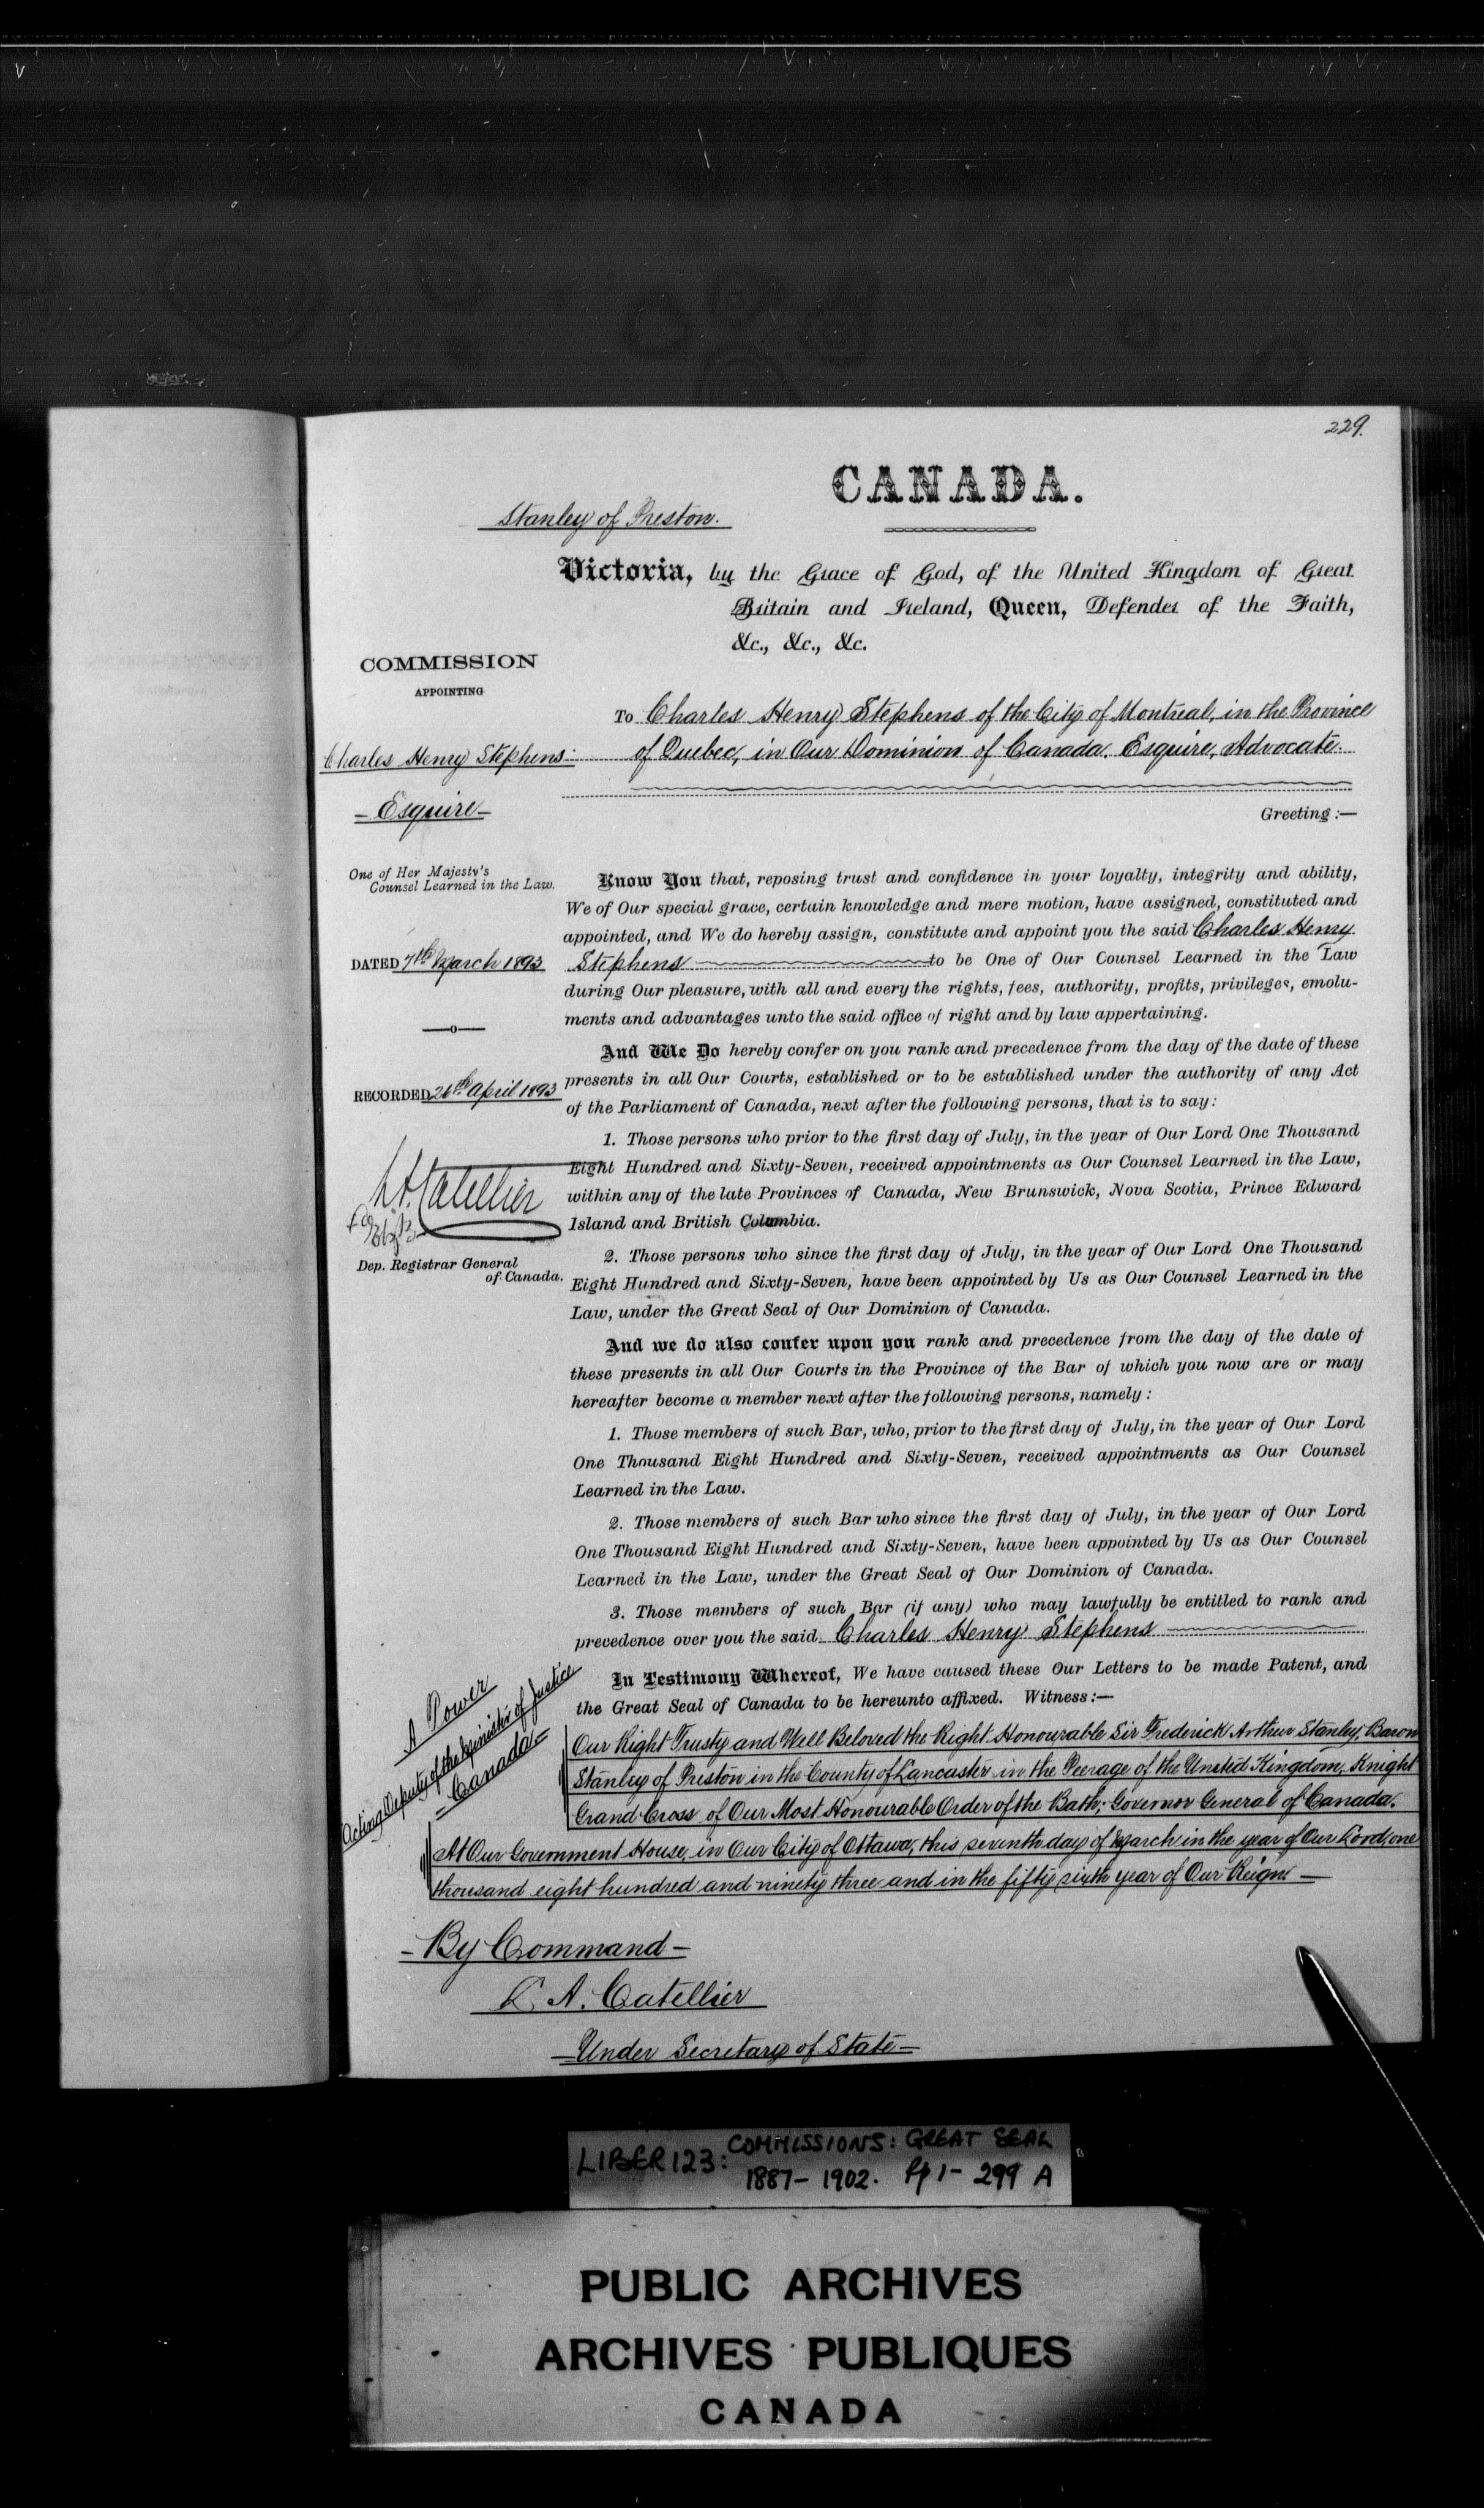 229.
CANADA.
Stanley of Preston.
Victoria, by the Grace of God, of the United Kingdom of Great
Britain and Ireland, Queen, Defender of the Faith,
&c., &c., &c.
COMMISSION
APPOINTING
Charles Henry Stephens
- Esquire -
One of Her Majesty's
Counsel Learned in the Law.
DATED 7th March 1893
—o—
RECORDED 26th April 1893
L. A. Catellier
Dep. Registrar General
of Canada.
To Charles Henry Stephens of the City of Montreal, in the Province
of Quebec, in Our Dominion of Canada. Esquire, Advocate.
Greeting :—
Know You that, reposing trust and confidence in your loyalty, integrity and ability,
We of Our special grace, certain knowledge and mere motion, have assigned, constituted and
appointed, and We do hereby assign, constitute and appoint you the said Charles Henry
Stephens to be One of Our Counsel Learned in the Law
during Our pleasure, with all and every the rights, fees, authority, profits, privileges, emolu-
ments and advantages unto the said office of right and by law appertaining.
And We Do hereby confer on you rank and precedence from the day of the date of these
presents in all Our Courts, established or to be established under the authority of any Act
of the Parliament of Canada, next after the following persons, that is to say:
1. Those persons who prior to the first day of July, in the year of Our Lord One Thousand
Eight Hundred and Sixty-Seven, received appointments as Our Counsel Learned in the Law,
within any of the late Provinces of Canada, New Brunswick, Nova Scotia, Prince Edward
Island and British Columbia.
2. Those persons who since the first day of July, in the year of Our Lord One Thousand
Eight Hundred and Sixty-Seven, have been appointed by Us as Our Counsel Learned in the
Law, under the Great Seal of Our Dominion of Canada.
And we do also confer upon you rank and precedence from the day of the date of
these presents in all Our Courts in the Province of the Bar of which you now are or may
hereafter become a member next after the following persons, namely :
1. Those members of such Bar, who, prior to the first day of July, in the year of Our Lord
One Thousand Eight Hundred and Sixty-Seven, received appointments as Our Counsel
Learned in the Law.
2. Those members of such Bar who since the first day of July, in the year of Our Lord
One Thousand Eight Hundred and Sixty-Seven, have been appointed by Us as Our Counsel
Learned in the Law, under the Great Seal of Our Dominion of Canada.
3. Those members of such Bar (if any) who may lawfully be entitled to rank and
precedence over you the said Charles Henry Stephens
In Testimony Whereof, We have caused these Our Letters to be made Patent, and
the Great Seal of Canada to be hereunto affixed. Witness:—
A Power
Acting Deputy of the Minister of Justice
- Canada -
Our Right Trusty and Well Beloved the Right Honourable Sir Frederick Arthur Stanley, Baron
Stanley of Preston in the County of Lancaster in the Peerage of the United Kingdom, Knight
Grand Cross of Our Most Honourable Order of the Bath; Governor General of Canada.
At Our Government House, in Our City of Ottawa, this seventh day of March in the year of Our Lord, one
thousand eight hundred and ninety three and in the fifty sixth year of Our Reign. —
- By Command -
L. A. Catellier
- Under Secretary of State -
LIBER 123: COMMISSIONS: GREAT SEAL
1887 - 1902. Pp 1 - 299 A
PUBLIC ARCHIVES
ARCHIVES PUBLIQUES
CANADA